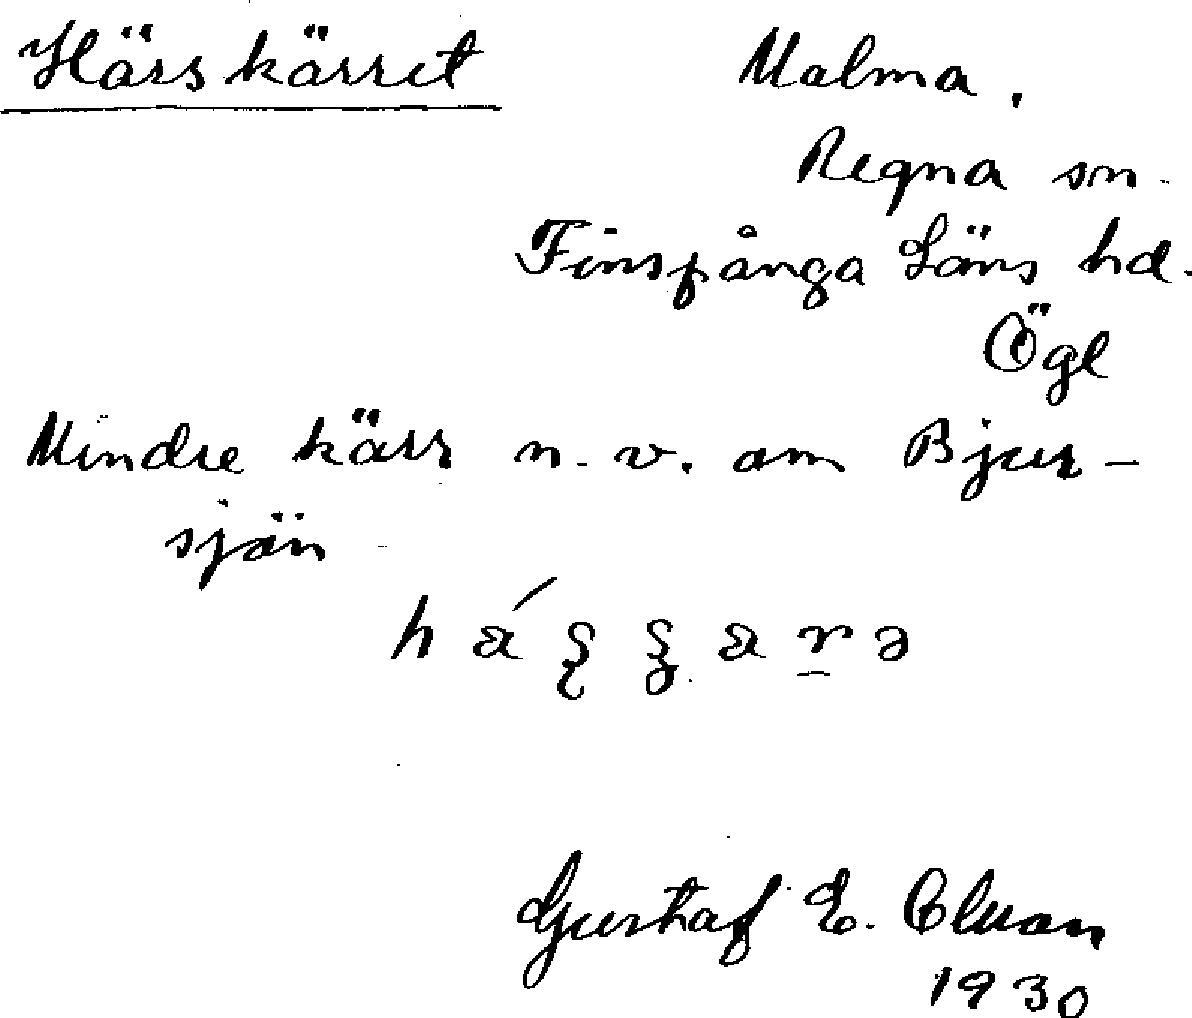 Härskärret
Malma.
Regna sn.
Finspånga Läns hd.
Ögl
Mindre kärr n.v. om Bjur-
sjön
Gustaf E.
1930